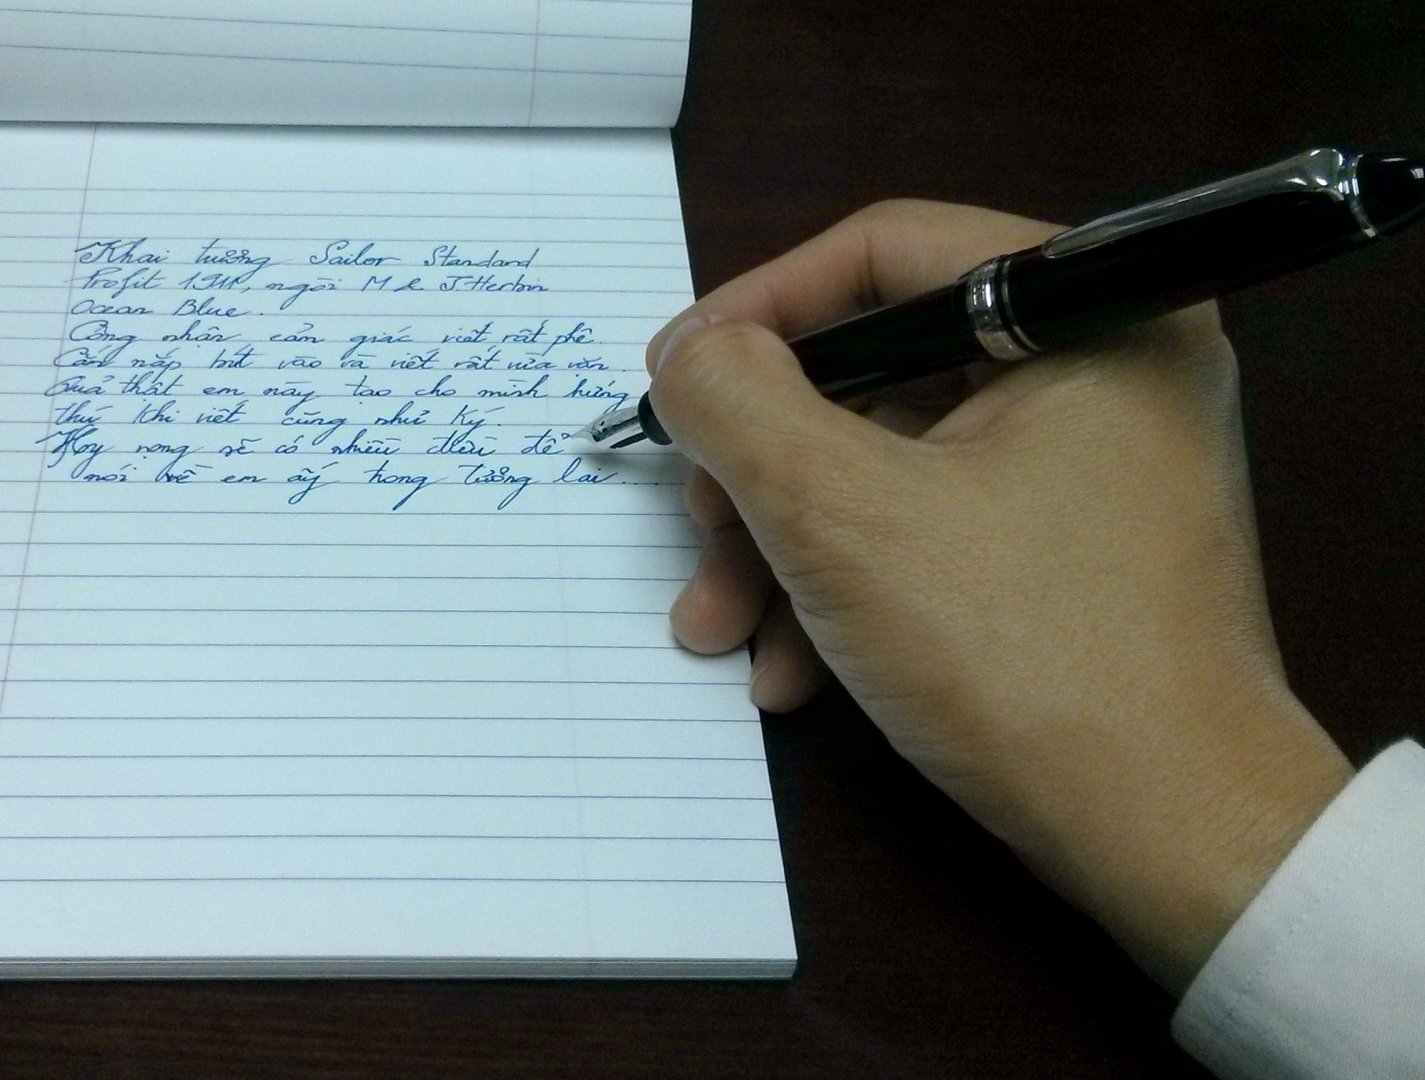 Khai trương Sailor Standard
Profit 1911, ngòi M & J.Herbin
Ocean Blue.
Công nhận cảm giác viết rất phê.
Cắm nắp bút vào và viết rất vừa vặn.
Quả thật em này tạo cho mình hứng
thú khi viết cũng như ký.
Hy vọng sẽ có nhiều điều để
nói về em ấy trong tương lai....